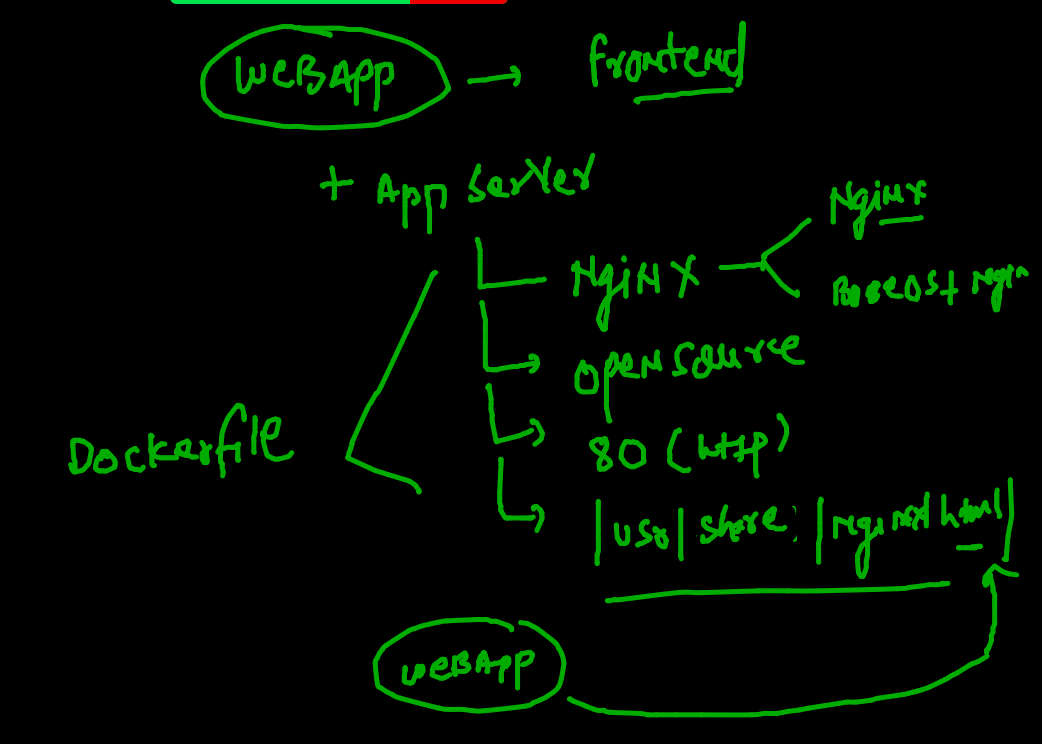 WEBAPP → frontend
+ App server
NgiNX
Nginx
OpenSource
80 (http)
/usr/share/nginx/html/
Dockerfile
WEBAPP